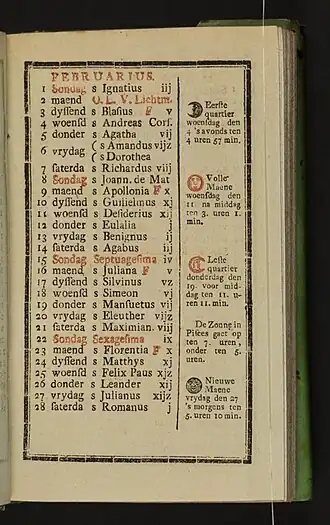 FEBRUARIUS.
1 Sondag s Ignatius iij
2 maend O. L. V. Lichtm.
3 dyssend s Blasius F v
4 woensd s Andreas Cors.
5 donder s Agatha vij
6 vrydag ( s Amandus vijz
( s Dorothea
7 saterda s Richardus viij
8 Sondag s Joann. de Mat
9 maend s Apollonia F x
10 dyssend s Guilielmus xj
11 woensd s Desiderius xij
12 donder s Eulalia j
13 vrydag s Benignus ij
14 saterda s Agabus iij
15 Sondag Septuagesima iv
16 maend s Juliana F v
17 dyssend s Silvinus vz
18 woensd s Simeon vj
19 donder s Mansuetus vij
20 vrydag s Eleuther vijz
21 saterda s Maximian. viij
22 Sondag Sexagesima ix
23 maend s Florentia F x
24 dyssend s Matthys xj
25 woensd s Felix Paus xjz
26 donder s Leander xij
27 vrydag s Julianus xijz
28 saterda s Romanus j
Eerste
quartier
woensdag den
4 's avonds ten
4 uren 57 min.
Volle
Maene
woensdag den
11 na middag
ten 3. uren 1.
min.
Leste
quartier
donderdag den
19. voor mid-
dag ten 11. u-
ren 11. min.
De Zonne in
Pisces gaet op
ten 7. uren,
onder ten 5.
uren.
Nieuwe
Maene
vrydag den 27
's morgens ten
5. uren 10 min.